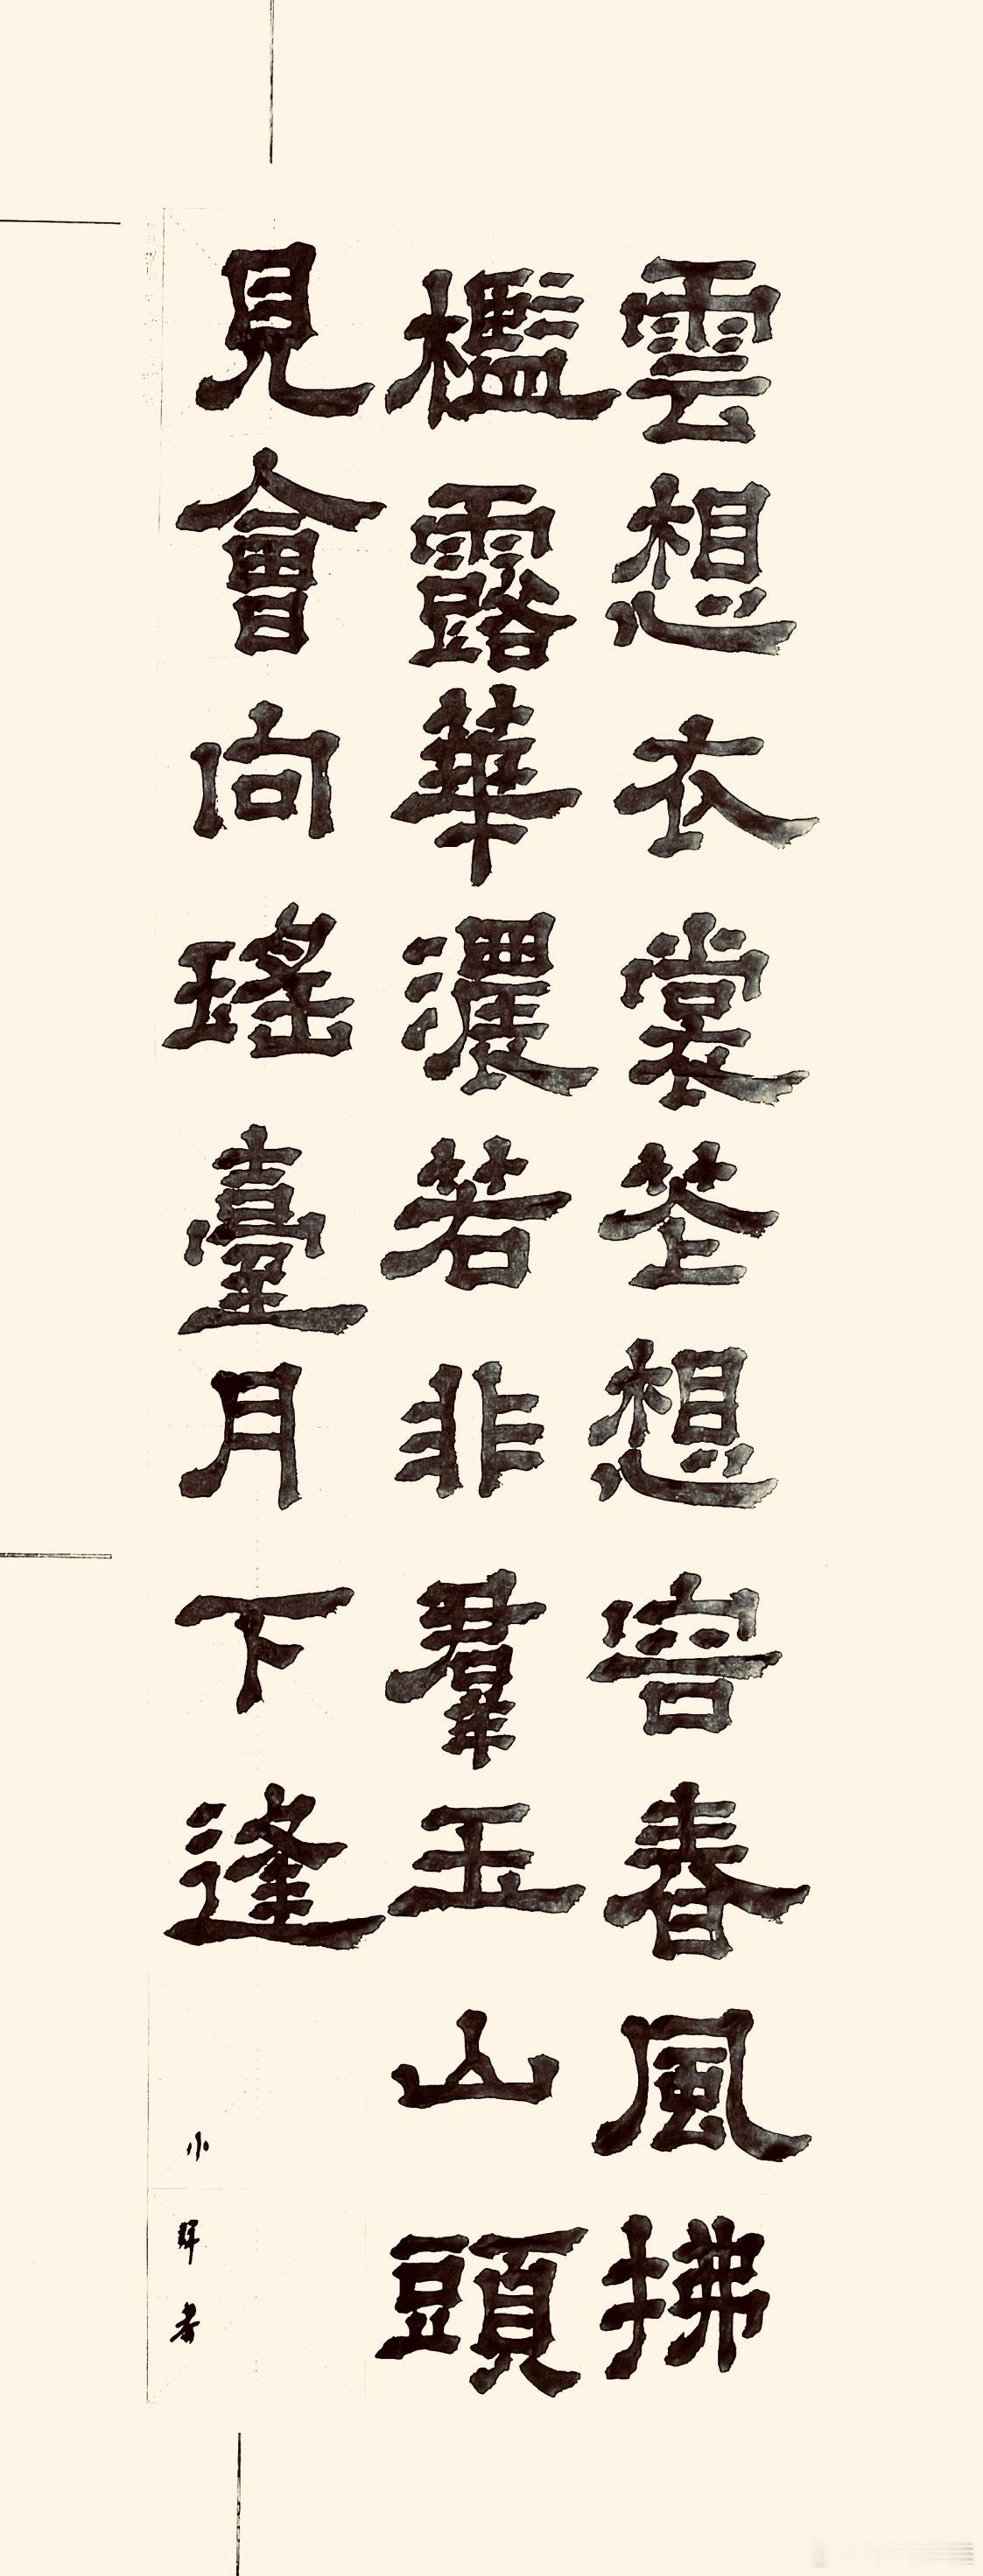 雲想衣裳花想容春風拂
檻露華濃若非羣玉山頭
見會向瑤臺月下逢
小